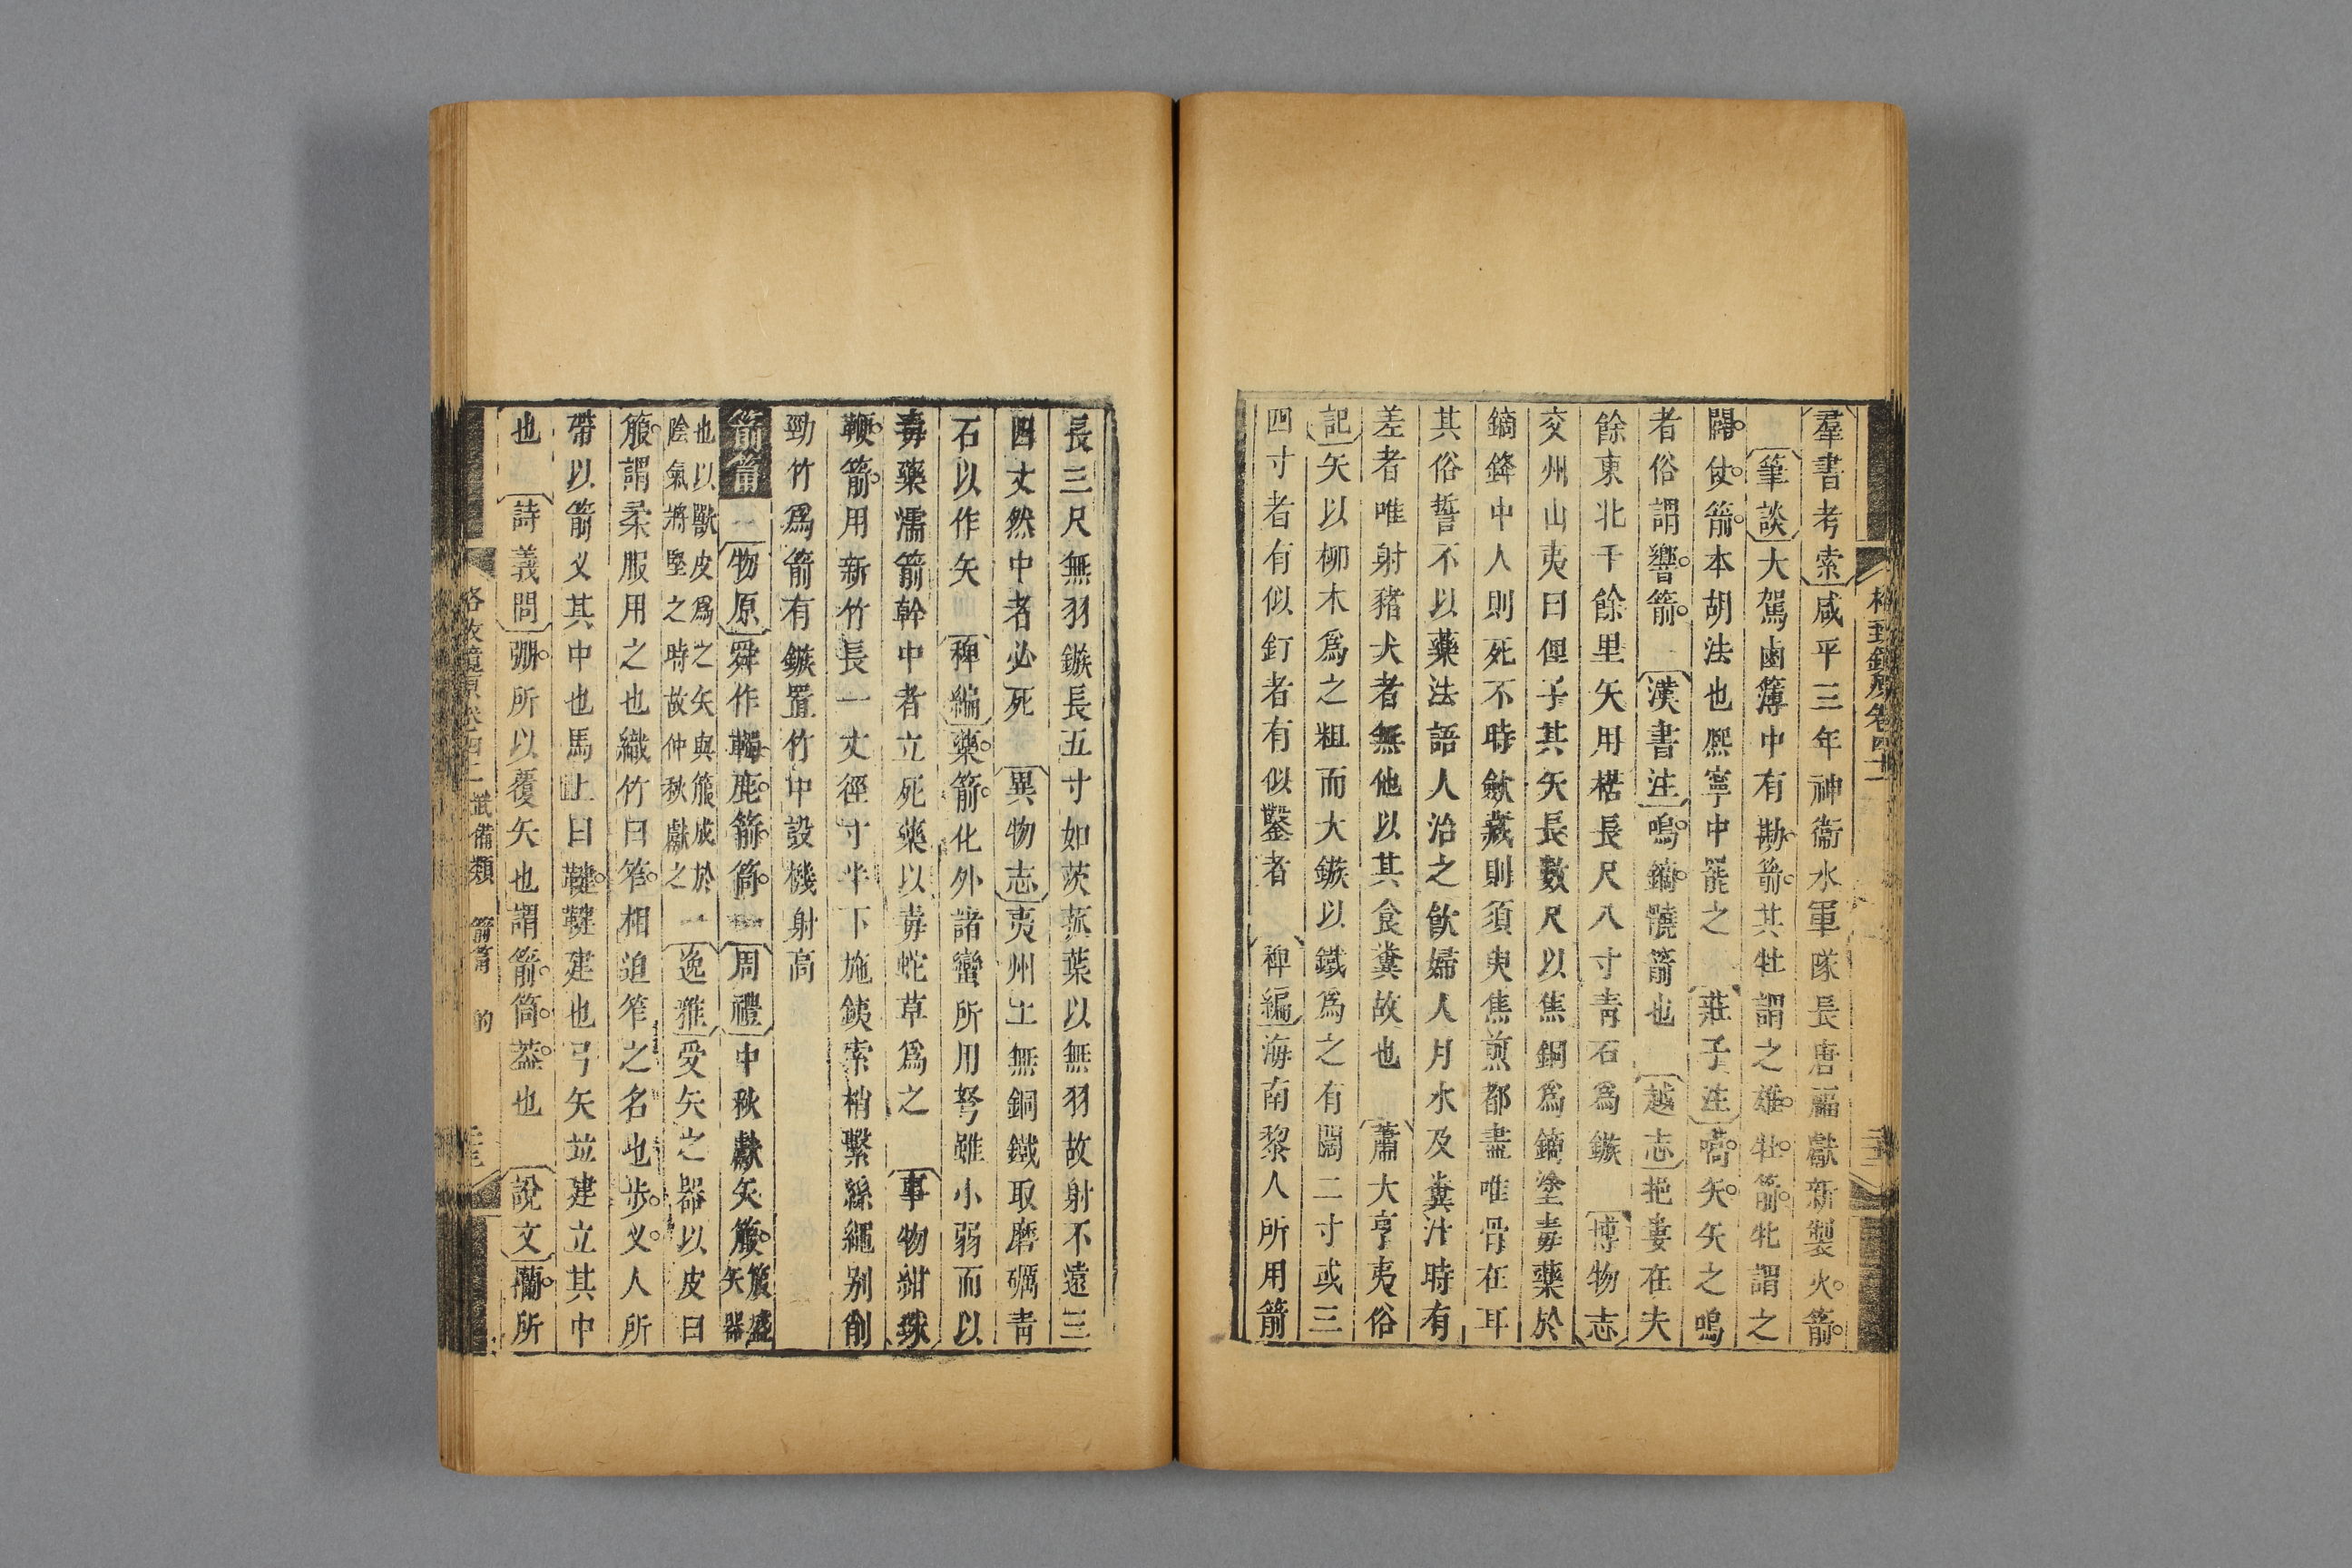 格致鏡原卷四十二
羣書考索咸平三年神衞水軍隊長唐福獻新製火箭
筆談大駕鹵簿中有勘箭其牡謂之雄牡箭牝謂之
闢仗箭本胡法也熈寧中罷之 莊子注嚆矢矢之鳴
者俗謂響箭 漢書注鳴鏑髐箭也 越志挹婁在夫
餘東北千餘里矢用楛長尺八寸青石爲鏃 博物志
交州山夷曰俚子其矢長數尺以焦銅爲鏑塗毒藥於
鏑鋒中人則死不時斂藏則須臾焦煎都盡唯骨在耳
其俗誓不以藥法語人治之飲婦人月水及糞汁時有
差者唯射豬犬者無他以其食糞故也 蕭大亨夷俗
記矢以柳木爲之粗而大鏃以鐵爲之有闊二寸或三
四寸者有似釘者有似鑿者 稗編海南黎人所用箭
長三尺無羽鏃長五寸如茨菰葉以無羽故射不遠三
四丈然中者必死 異物志夷州土無銅鐵取磨礪青
石以作矢 稗編藥箭化外諸蠻所用弩雖小弱而以
毒藥濡箭幹中者立死藥以毒蛇草爲之 事物紺珠
鞭箭用新竹長一丈徑寸半下施鐵索梢繫絲繩别削
勁竹爲箭有鏃置竹中設機射高
箭筩 物原舜作韣鹿箭筒 周禮中秋獻矢箙箙盛矢器
也以獸皮爲之矢與箙成於陰氣將堅之時故仲秋獻之 逸雅受矢之器以皮曰
箙謂柔服用之也織竹曰笮相迫笮之名也步叉人所
帶以箭叉其中也馬上曰鞬鞬建也弓矢竝建立其中
也 詩義問弸所以覆矢也謂箭筒葢也 說文䕞所
格致鏡原卷四十二 武備類 箭筩 的